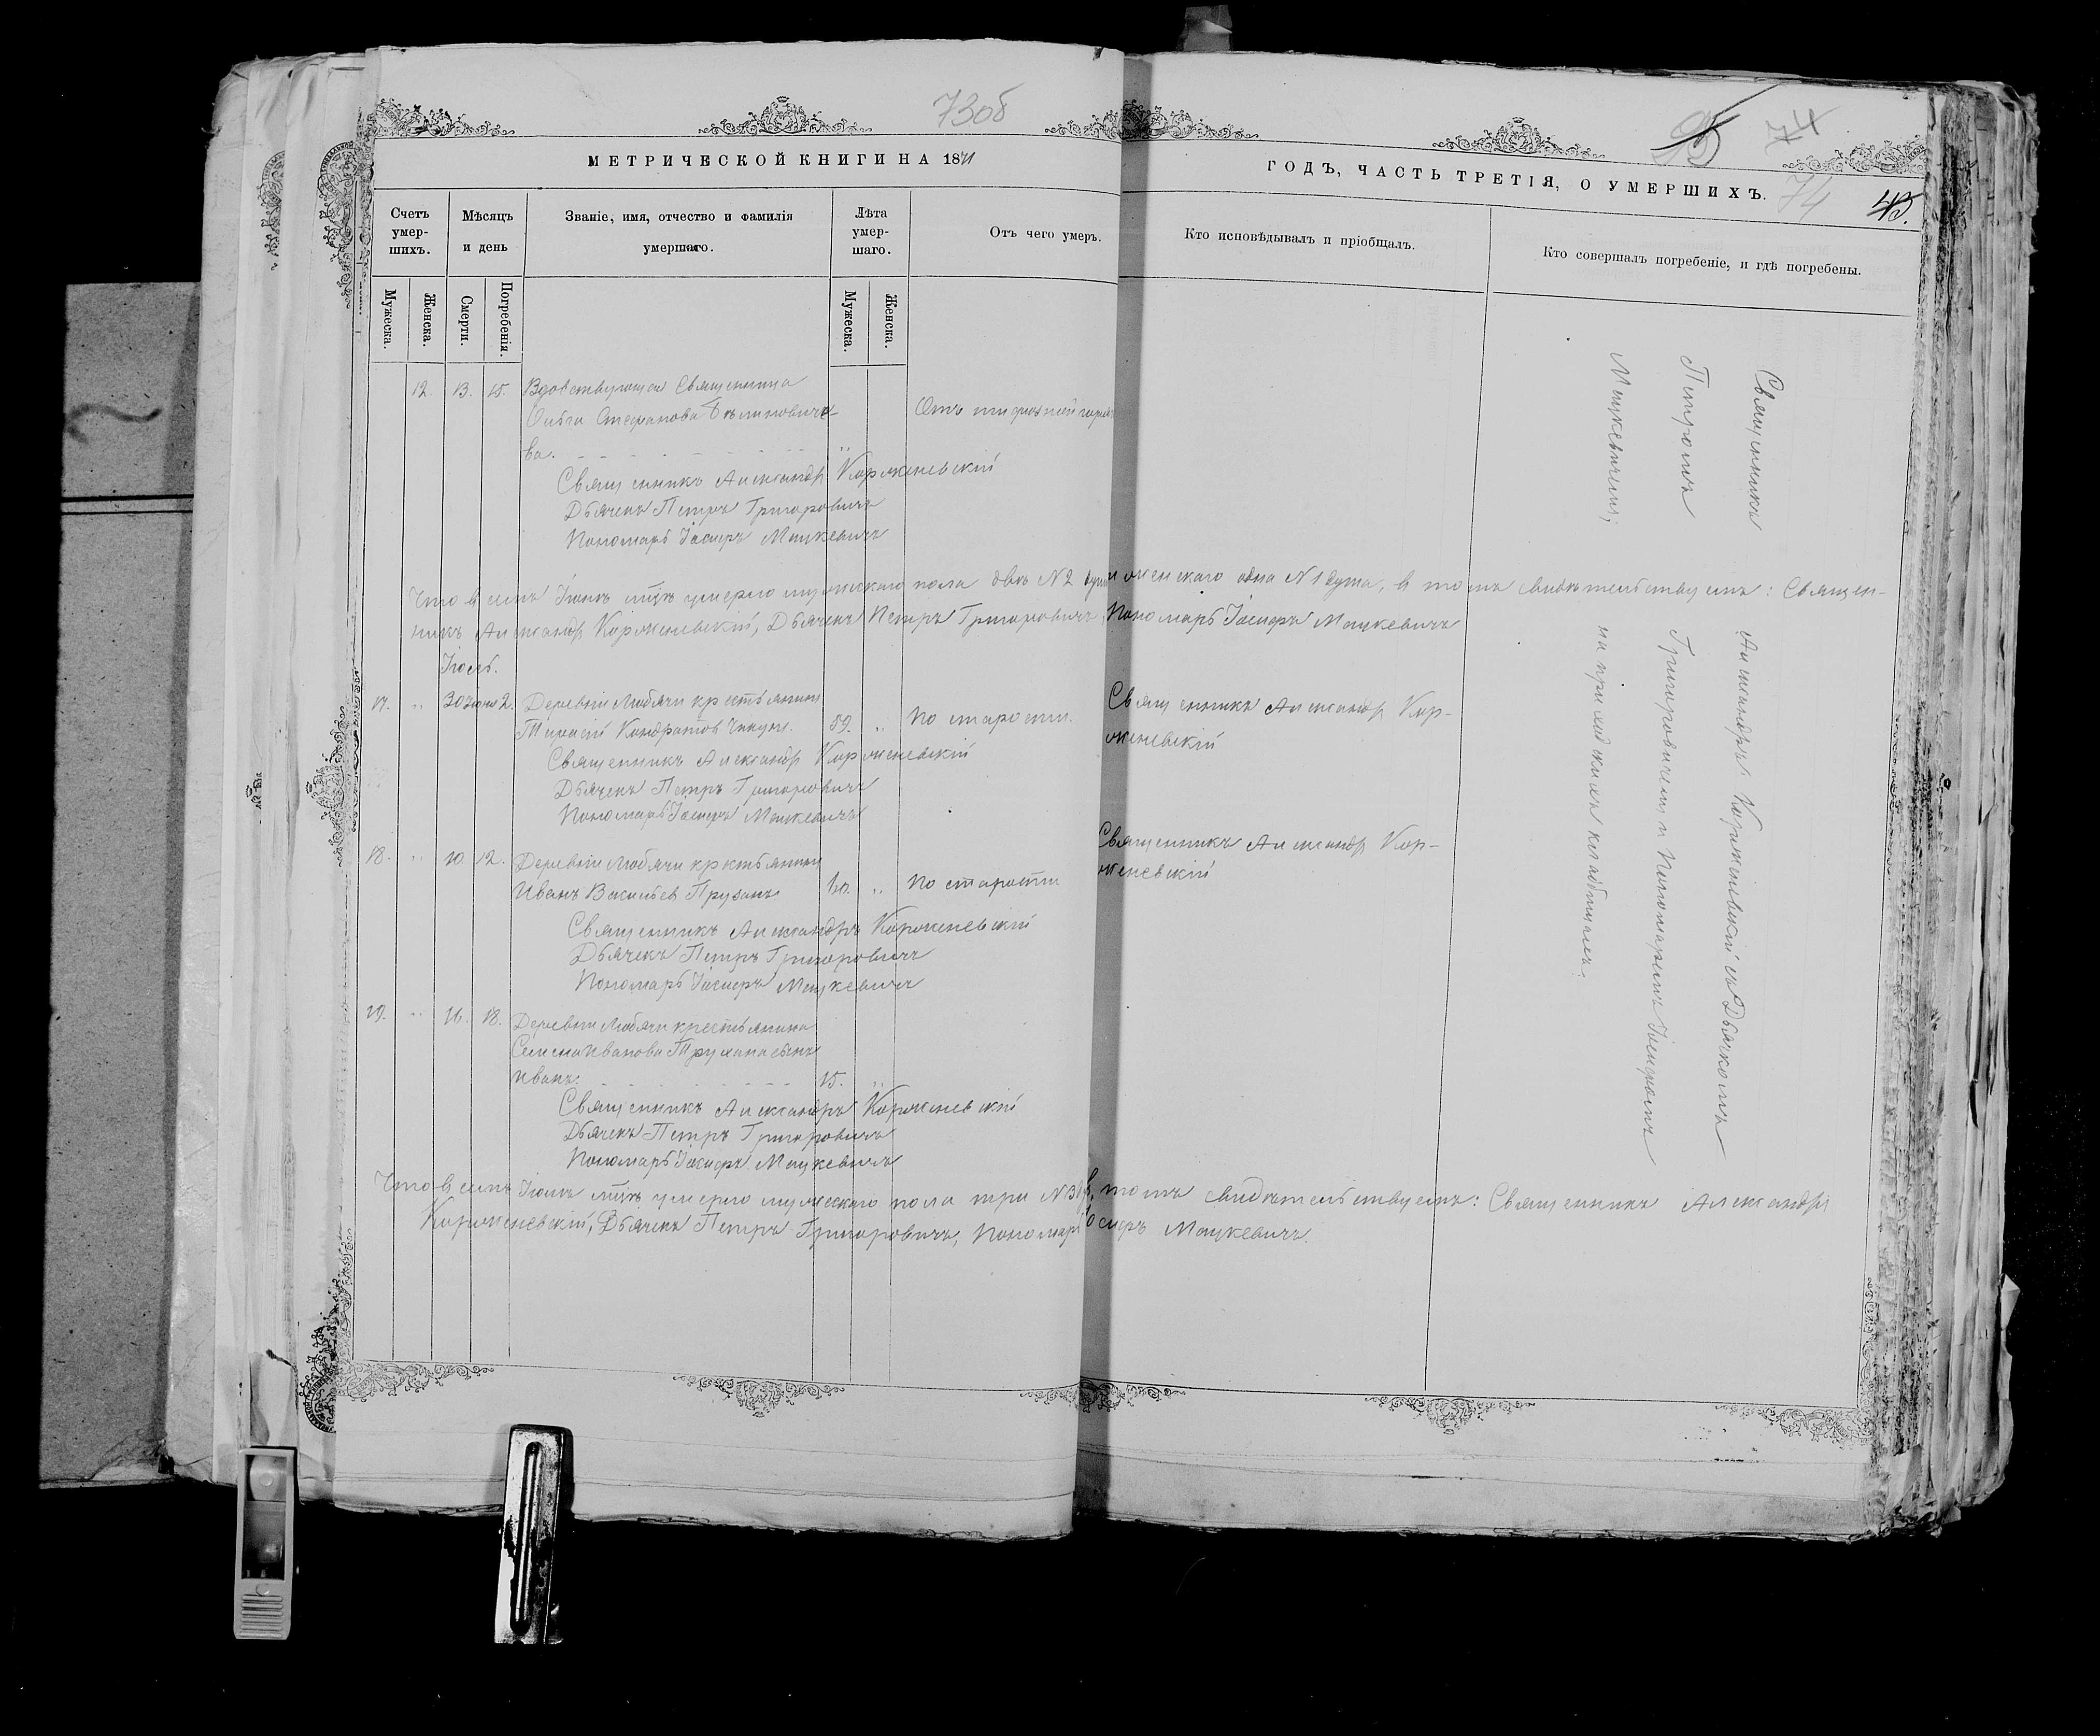 73об
95 74
МЕТРИЧЕСКОЙ КНИГИ НА 1871
ГОДЪ, ЧАСТЬ ТРЕТІЯ, О УМЕРШИХЪ.
74
Счетъ умер-шихъ.
Мѣсяцъ и день
Званіе, имя, отчество и фамилія умершаго.
Лѣта умер-шаго.
Отъ чего умеръ.
Кто исповѣдывалъ и пріобщалъ.
Кто совершалъ погребеніе, и гдѣ погребены.
Мужеска.
Женска.
Смерти.
Погребенія.
Мужеска.
Женска.
12. 13. 15. Вдовствующая Священница
Ольга Стефанова
ва. Отъ
Священникъ Александръ Корженевскій
Дьячекъ Петръ Григоровичъ
Пономарь Іосифъ Мацкевичъ
Что въ семъ Іюнѣ м̃цѣ умерло мужескаго пола двѣ № 2 души женскаго одна № 1 душа, в томъ свидѣтельствуемъ: Священ-
никъ Александръ Корженевскій, Дьячекъ Петръ Григоровичъ, Пономарь Іосифъ Мацкевичъ
Іюль.
17. „ 30 Іюня 2. Деревни Любячи крестьянинъ
Кондратовъ 59. „ По старости.
Священникъ Александръ Кор-
женевскій
Священникъ Александръ Корженевскій
Дьячекъ Петръ Григоровичъ
Пономарь Іосифъ Мацкевичъ
18. „ 10. 12. Деревни Любячи крестьянинъ
Иванъ Васильев 60. „ По старости
Священникъ Александръ Кор-
женевскій
Священникъ Александръ Корженевскій
Дьячекъ Петръ Григоровичъ
Пономарь Іосифъ Мацкевичъ
19. „ 16. 18. Деревни Любячи крестьянина
Семена Иванова сынъ
Иванъ. 15. „
Священникъ Александръ Корженевскій
Дьячекъ Петръ Григоровичъ
Пономарь Іосифъ Мацкевичъ
Что в семъ Іюлѣ м̃цѣ умерло мужескаго пола три № 3 в томъ свидѣтельствуемъ: Священникъ Александръ
Корженевскій, Дьячекъ Петръ Григоровичъ, Пономарь Іосифъ Мацкевичъ.
Священникъ Александръ Корженевскій съ Дьячкомъ
Петромъ Григоровичемъ и Пономаремъ Іосифомъ
Мацкевичемъ; на приходскихъ кладбищахъ.